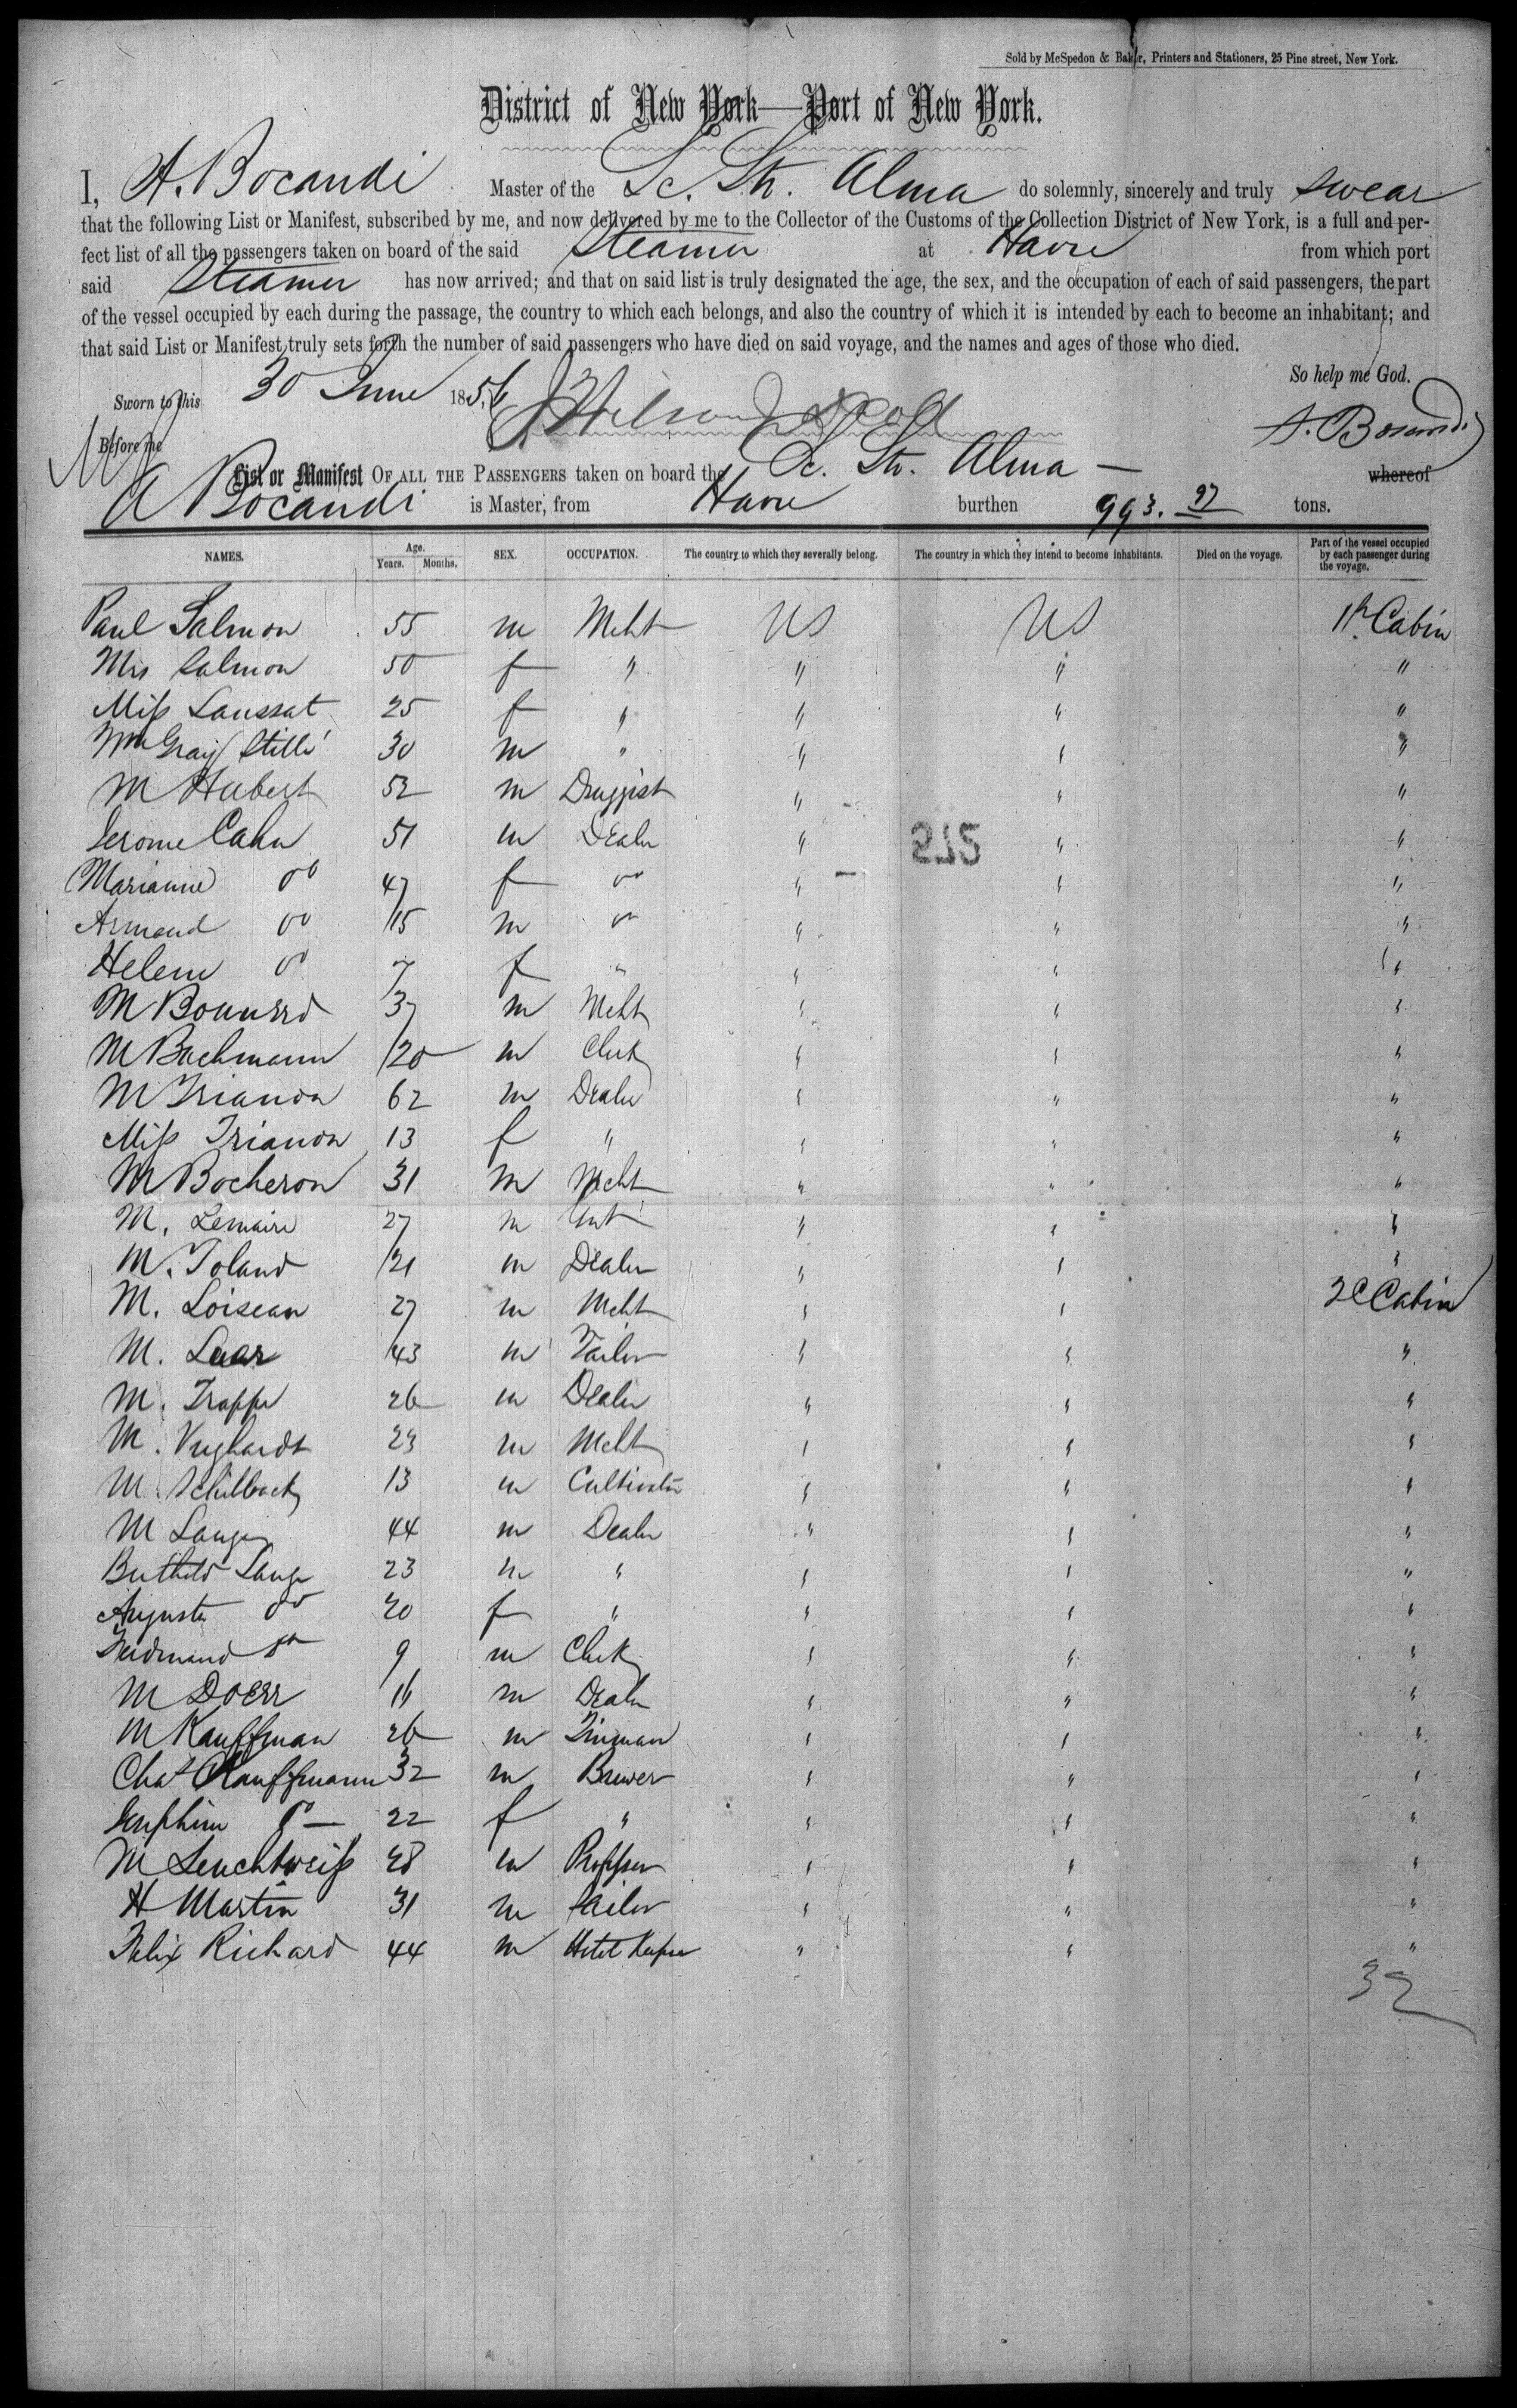 Sold by McSpedon & Baker, Printers and Stationers, 25 Pine street, New York.
District of New York—Port of New York.
I, A. Bocandi Master of the Sc. Str. Alma do solemnly, sincerely and truly swear
that the following List or Manifest, subscribed by me, and now delivered by me to the Collector of the Customs of the Collection District of New York, is a full and per-
fect list of all the passengers taken on board of the said Steamer at Havre from which port
said Steamer has now arrived; and that on said list is truly designated the age, the sex, and the occupation of each of said passengers, the part
of the vessel occupied by each during the passage, the country to which each belongs, and also the country of which it is intended by each to become an inhabitant; and
that said List or Manifest truly sets forth the number of said passengers who have died on said voyage, and the names and ages of those who died.
So help me God.
Sworn to this 30 June 1856
A. Bocandi
Before me
List or Manifest OF ALL THE PASSENGERS taken on board the Sc. Str. Alma — whereof
A Bocandi is Master, from Havre burthen 993. 97 tons.
NAMES. Age. Years. Months. SEX. OCCUPATION. The country to which they severally belong. The country in which they intend to become inhabitants. Died on the voyage. Part of the vessel occupied by each passenger during the voyage.
Paul Salmon 55 m Mcht US US 1st Cabin
Mrs Salmon 50 f " " " "
Miss Laussat 25 f " " " "
Wm Gray Stillé 30 m " " " "
M Hubert 52 m Druggist " " "
Jerome Cahn 51 m Dealer " " "
Marianne do 47 f do " " "
Armand do 15 m do " " "
Helene do 7 f " " " "
M Bonnerd 37 m Mcht " " "
M Bachmann 20 m Clerk " " "
M Trianon 62 m Dealer " " "
Miss Trianon 13 f " " " "
M Bocheron 31 m Mcht " " "
M. Lemaire 27 m " " "
M. Toland 21 m Dealer " " "
M. Loiseau 27 m Mcht " " 2d Cabin
M. 43 m Tailor " " "
M. Trappe 26 m Dealer " " "
M. 23 m Mcht " " "
M. 13 m Cultivator " " "
M Lange 44 m Dealer " " "
Berthold Lange 23 m " " " "
Augusta do 20 f " " " "
Ferdinand do 9 m Clerk " " "
M Doerr 16 m Dealer " " "
M Kauffman 26 m Tinman " " "
Chas Kauffmann 32 m Brewer " " "
Seraphine do — 22 f " " " "
M Leuchtweiss 48 m Professor " " "
H Martin 31 m Tailor " " "
Felix Richard 44 m Hotel Keeper " " "
32